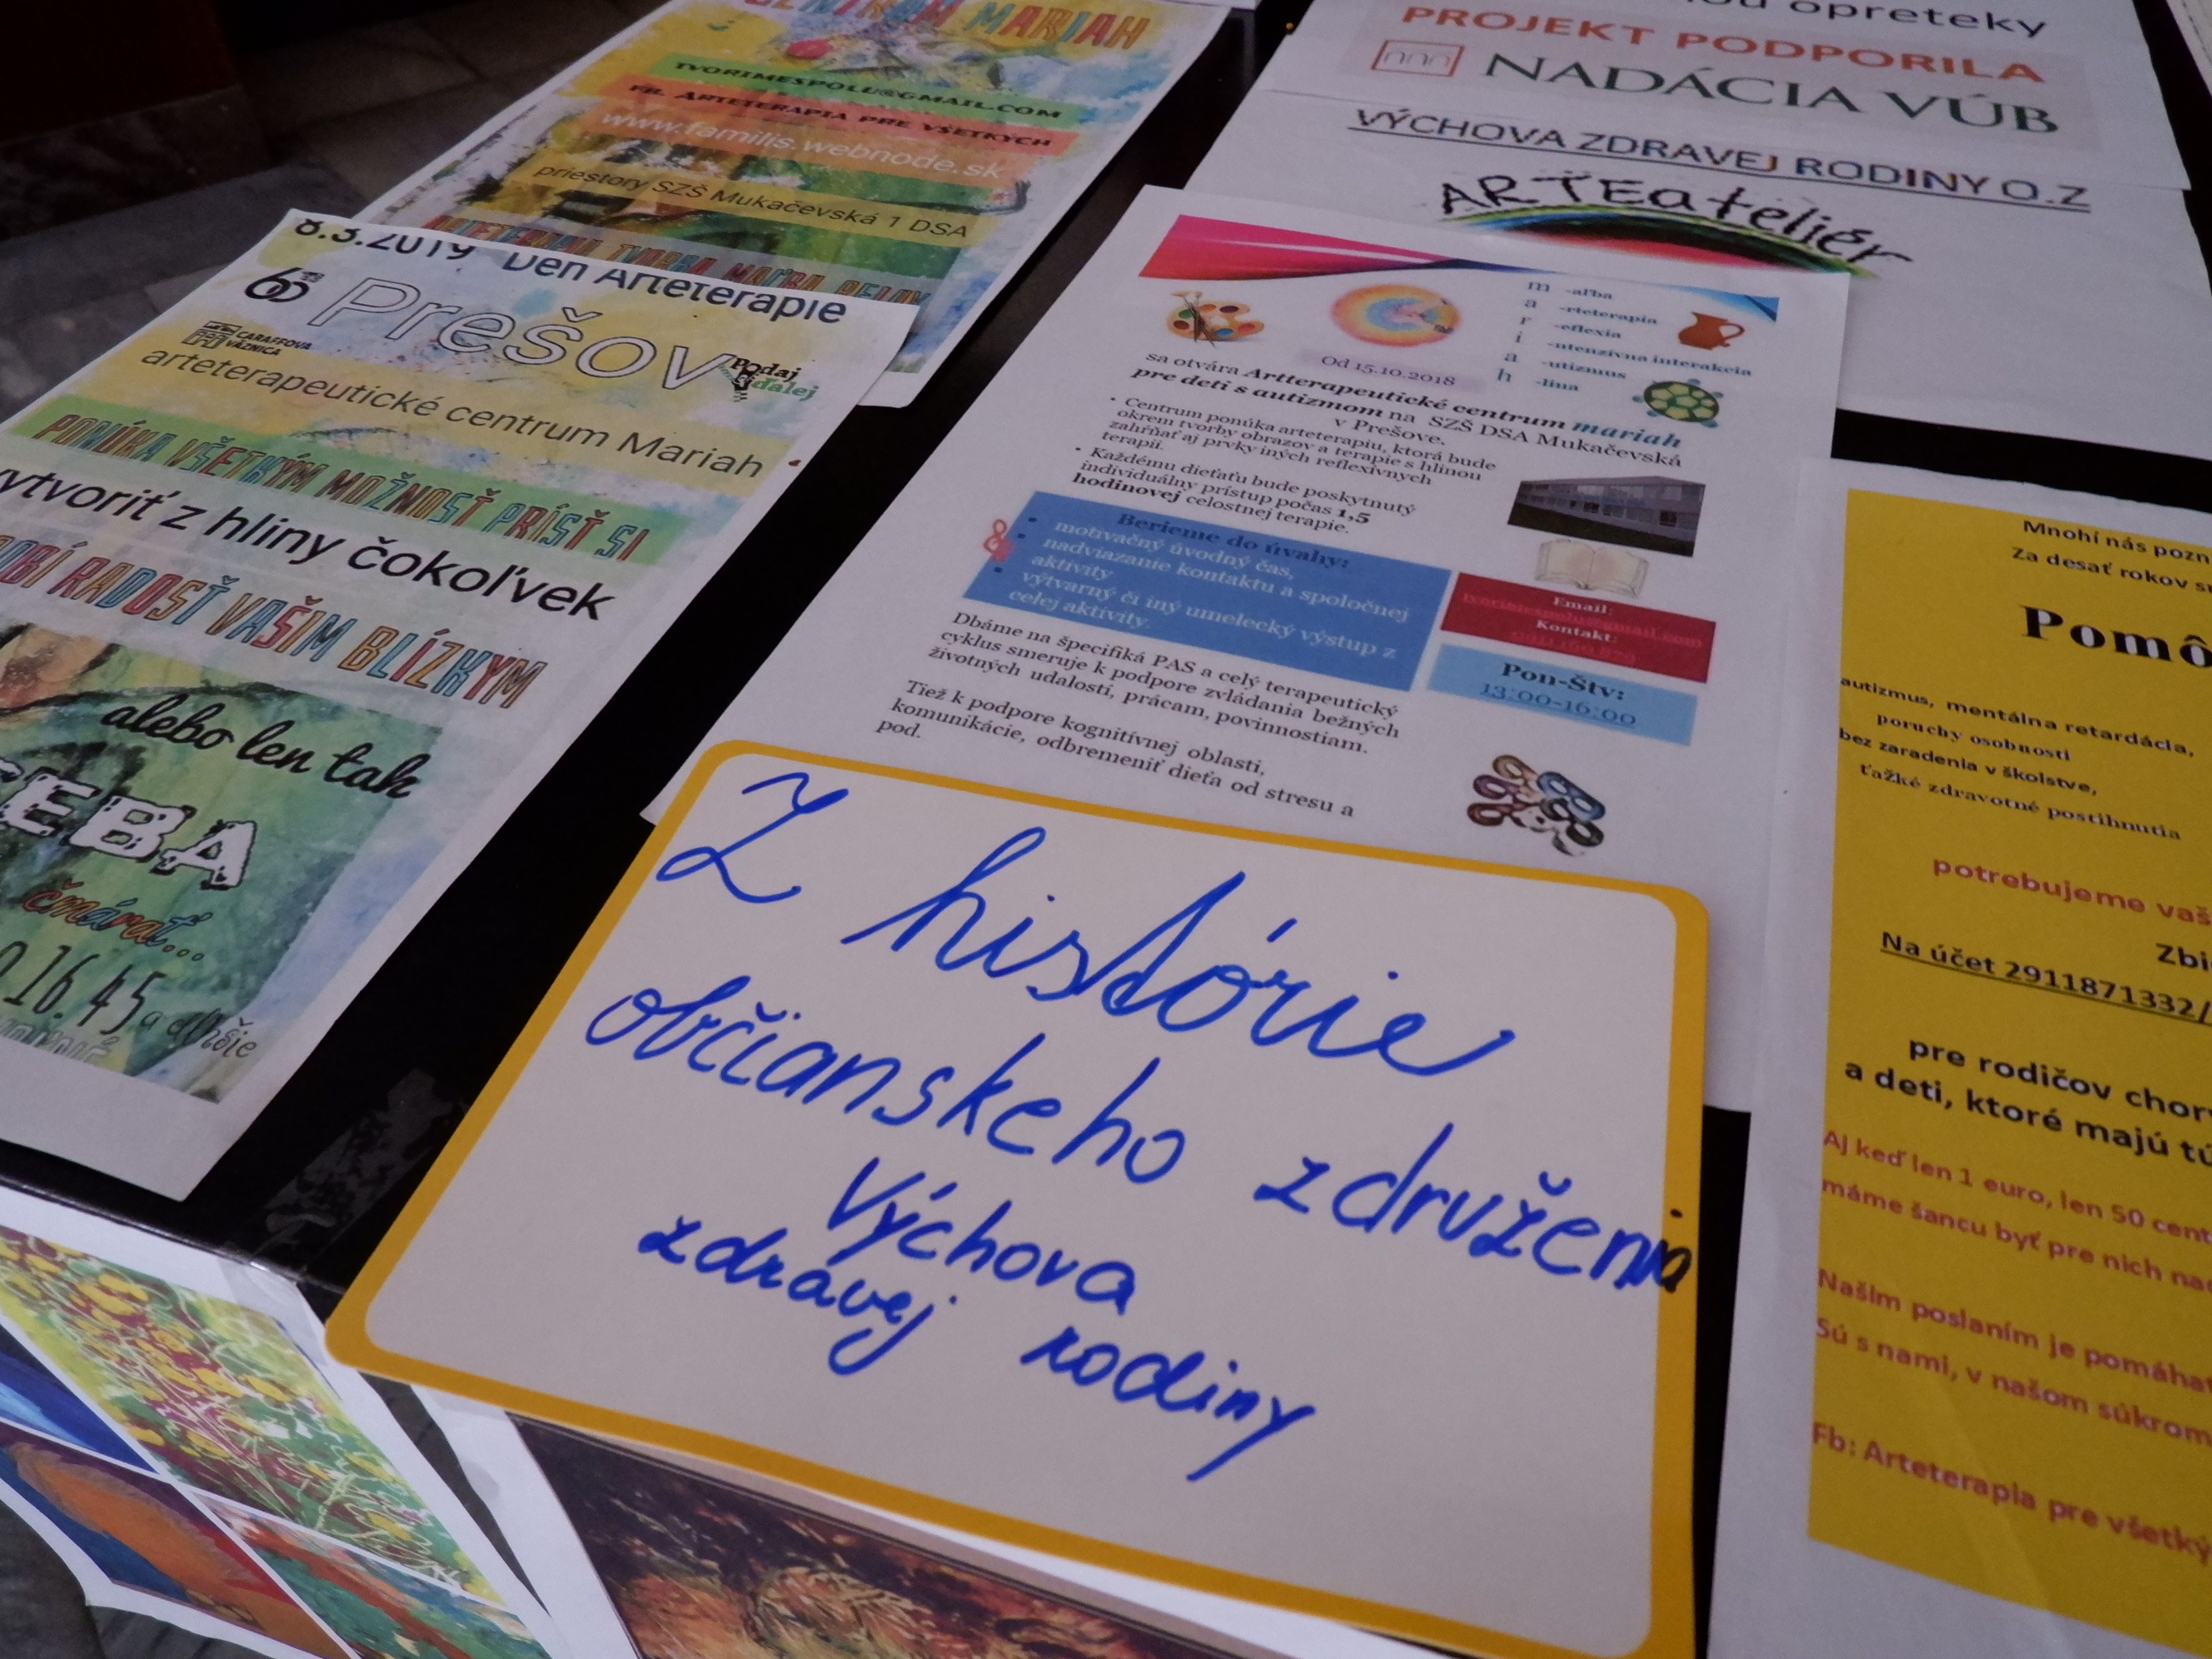 CENTRUM MARIAH
TVORIMESPOLU@GMAIL.COM
FB. ARTETERAPIA PRE VŠETKÝCH
www.familis.webnode.sk
priestory SZŠ Mukačevská 1 DSA
opreteky
PROJEKT PODPORILA
NADÁCIA VÚB
VÝCHOVA ZDRAVEJ RODINY O.Z
ARTEateliér
8.3.2019 Deň Arteterapie
60
Prešov
CARAFFOVA
VÄZNICA
Podaj
ďalej
arteterapeutické centrum Mariah
PONÚKA VŠETKÝM MOŽNOSŤ PRÍSŤ SI
vytvoriť z hliny čokoľvek
RADOSŤ VAŠIM BLÍZKYM
alebo len tak
čmárať...
16.45
m -aľba
a -rteterapia
r -eflexia
i -ntenzívna interakcia
a -utizmus
h -lina
Od 15.10.2018
sa otvára Artterapeutické centrum mariah
pre deti s autizmom na SZŠ DSA Mukačevská
v Prešove.
• Centrum ponúka arteterapiu, ktorá bude
okrem tvorby obrazov a terapie s hlinou
zahŕňať aj prvky iných reflexívnych
terapií.
• Každému dieťaťu bude poskytnutý
individuálny prístup počas 1,5
hodinovej celostnej terapie.
Berieme do úvahy:
• motivačný úvodný čas,
• nadviazanie kontaktu a spoločnej
aktivity
• výtvarný či iný umelecký výstup z
celej aktivity.
Email:
tvorimespolu@gmail.com
Kontakt:
Pon-Štv:
13:00-16:00
Dbáme na špecifiká PAS a celý terapeutický
cyklus smeruje k podpore zvládania bežných
životných udalostí, prácam, povinnostiam.
Tiež k podpore kognitívnej oblasti,
komunikácie, odbremeniť dieťa od stresu a
pod.
Z histórie
občianskeho združenia
Výchova
zdravej rodiny
Mnohí nás
Za desať rokov
autizmus, mentálna retardácia,
poruchy osobnosti
bez zaradenia v školstve,
ťažké zdravotné postihnutia
potrebujeme
Na účet 2911871332/
pre rodičov
a deti, ktoré majú
Aj keď len 1 euro, len 50
máme šancu byť pre nich
Naším poslaním je
Sú s nami, v našom
Fb: Arteterapia pre